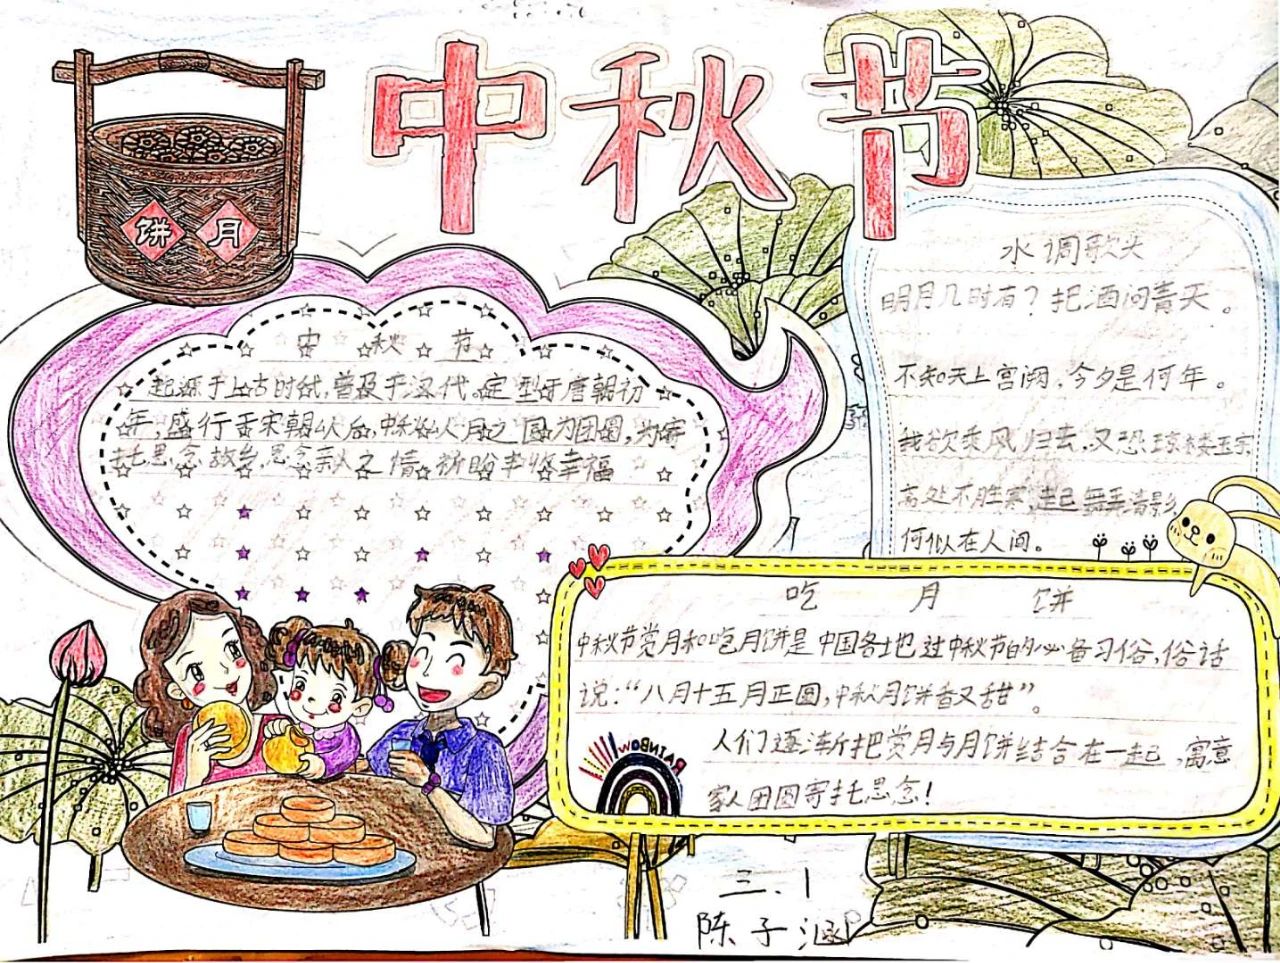 中秋节
饼月
中秋节
起源于上古时代,普及于汉代。定型于唐朝初
年,盛行于宋朝以后,中秋以月之圆为团圆,为寄
托思念故乡,思念亲人之情,祈盼丰收幸福
水调歌头
明月几时有?把酒问青天。
不知天上宫阙,今夕是何年。
我欲乘风归去,又恐琼楼玉宇
高处不胜寒,起舞弄清影
何似在人间。
吃月饼
中秋节赏月和吃月饼是中国各地过中秋节的必备习俗,俗话
说:“八月十五月正圆,中秋月饼香又甜”。
人们逐渐把赏月与月饼结合在一起,寓意
家人团圆寄托思念!
RAINBOW
三.1
陈子涵